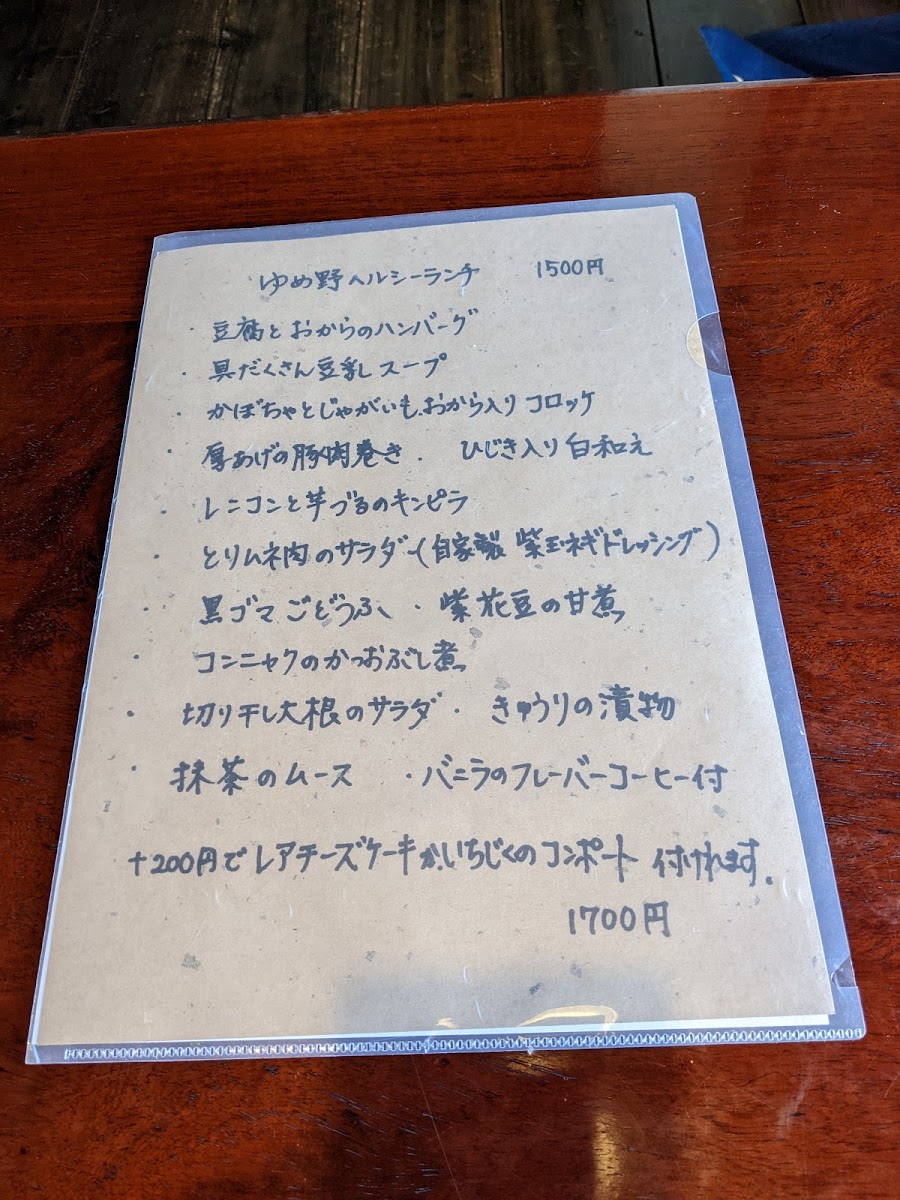 ゆめ野ヘルシーランチ 1500円
・豆腐とおからのハンバーグ
・具だくさん豆乳スープ
・かぼちゃとじゃがいも、おから入りコロッケ
・厚あげの豚肉巻き ・ ひじき入り白和え
・レンコンと芋づるのキンピラ
・とりムネ肉のサラダー(自家製 紫玉ネギドレッシング)
・黒ゴマごどうふ ・ 紫花豆の甘煮
・コンニャクのかつおぶし煮
・切り干し大根のサラダ ・ きゅうりの漬物
・抹茶のムース ・バニラのフレーバーコーヒー付
+200円でレアチーズケーキか、いちじくのコンポート 付けれます。
1700円